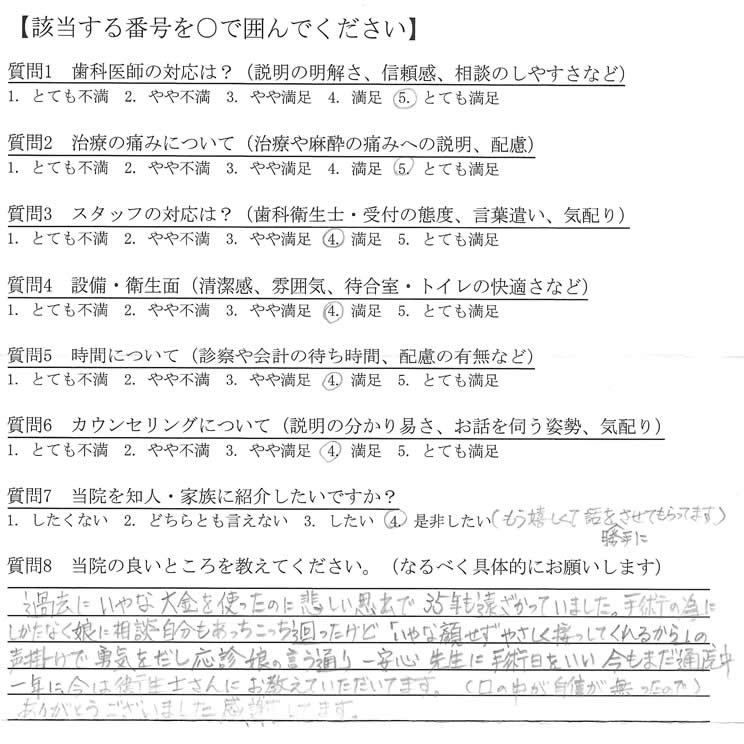 【該当する番号を○で囲んでください】
質問1 歯科医師の対応は？（説明の明解さ、信頼感、相談のしやすさなど）
1. とても不満 2. やや不満 3. やや満足 4. 満足 5. とても満足
質問2 治療の痛みについて（治療や麻酔の痛みへの説明、配慮）
1. とても不満 2. やや不満 3. やや満足 4. 満足 5. とても満足
質問3 スタッフの対応は？（歯科衛生士・受付の態度、言葉遣い、気配り）
1. とても不満 2. やや不満 3. やや満足 4. 満足 5. とても満足
質問4 設備・衛生面（清潔感、雰囲気、待合室・トイレの快適さなど）
1. とても不満 2. やや不満 3. やや満足 4. 満足 5. とても満足
質問5 時間について（診察や会計の待ち時間、配慮の有無など）
1. とても不満 2. やや不満 3. やや満足 4. 満足 5. とても満足
質問6 カウンセリングについて（説明の分かり易さ、お話を伺う姿勢、気配り）
1. とても不満 2. やや不満 3. やや満足 4. 満足 5. とても満足
質問7 当院を知人・家族に紹介したいですか？
1. したくない 2. どちらとも言えない 3. したい 4. 是非したい（もう嬉しくて話をさせてもらってます）
勝手に
質問8 当院の良いところを教えてください。（なるべく具体的にお願いします）
過去にいやな大金を使ったのに悲しい思出で35年も遠ざかっていました。手術の為に
しかたなく娘に相談自分もあっちこっち廻ったけど「いやな顔せずやさしく接っしてくれるから」の
声掛けで勇気をだし応診娘の言う通り一安心先生に手術日をいい今もまだ通院中
一年に、今は衛生士さんにお教えていただいてます。（口の中が自信が無ったので）
ありがとうございました感謝してます。